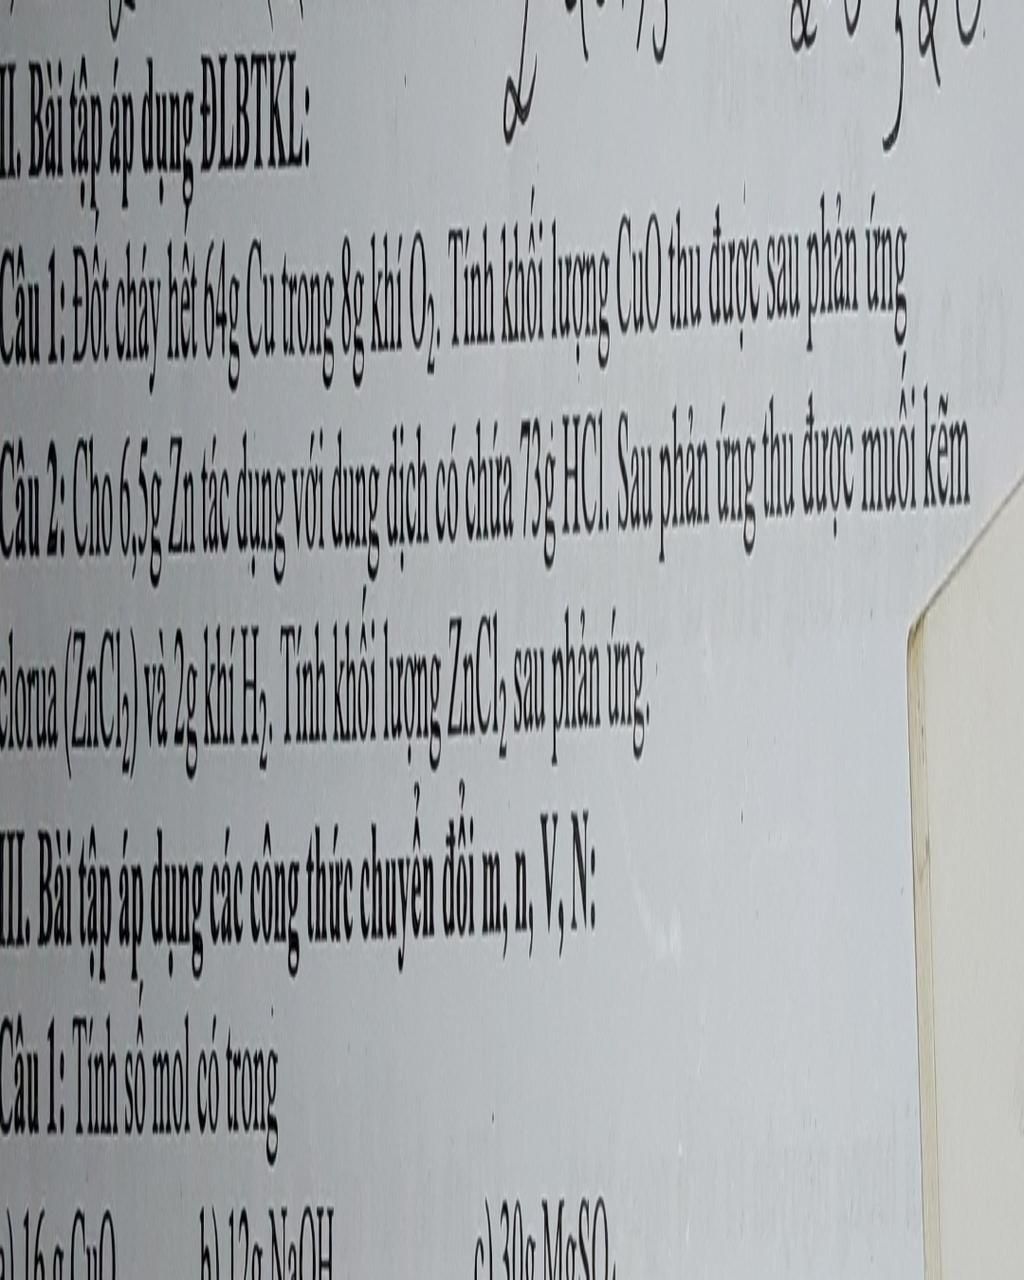 II. Bài tập áp dụng ĐLBTKL:
Câu 1: Đốt cháy hết 64g Cu trong 8g khí O₂. Tính khối lượng CuO thu được sau phản ứng
Câu 2: Cho 6,5g Zn tác dụng với dung dịch có chứa 73g HCl. Sau phản ứng thu được muối kẽm
clorua (ZnCl₂) và 2g khí H₂. Tính khối lượng ZnCl₂ sau phản ứng.
III. Bài tập áp dụng các công thức chuyển đổi m, n, V, N:
Câu 1: Tính số mol có trong
a) 16 g CuO b) 12g NaOH c) 30g MgSO